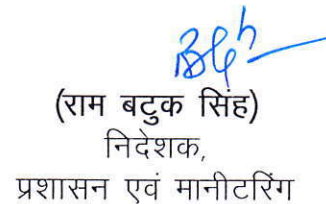 (राम बटुक सिंह)
निदेशक,
प्रशासन एवं मानीटरिंग